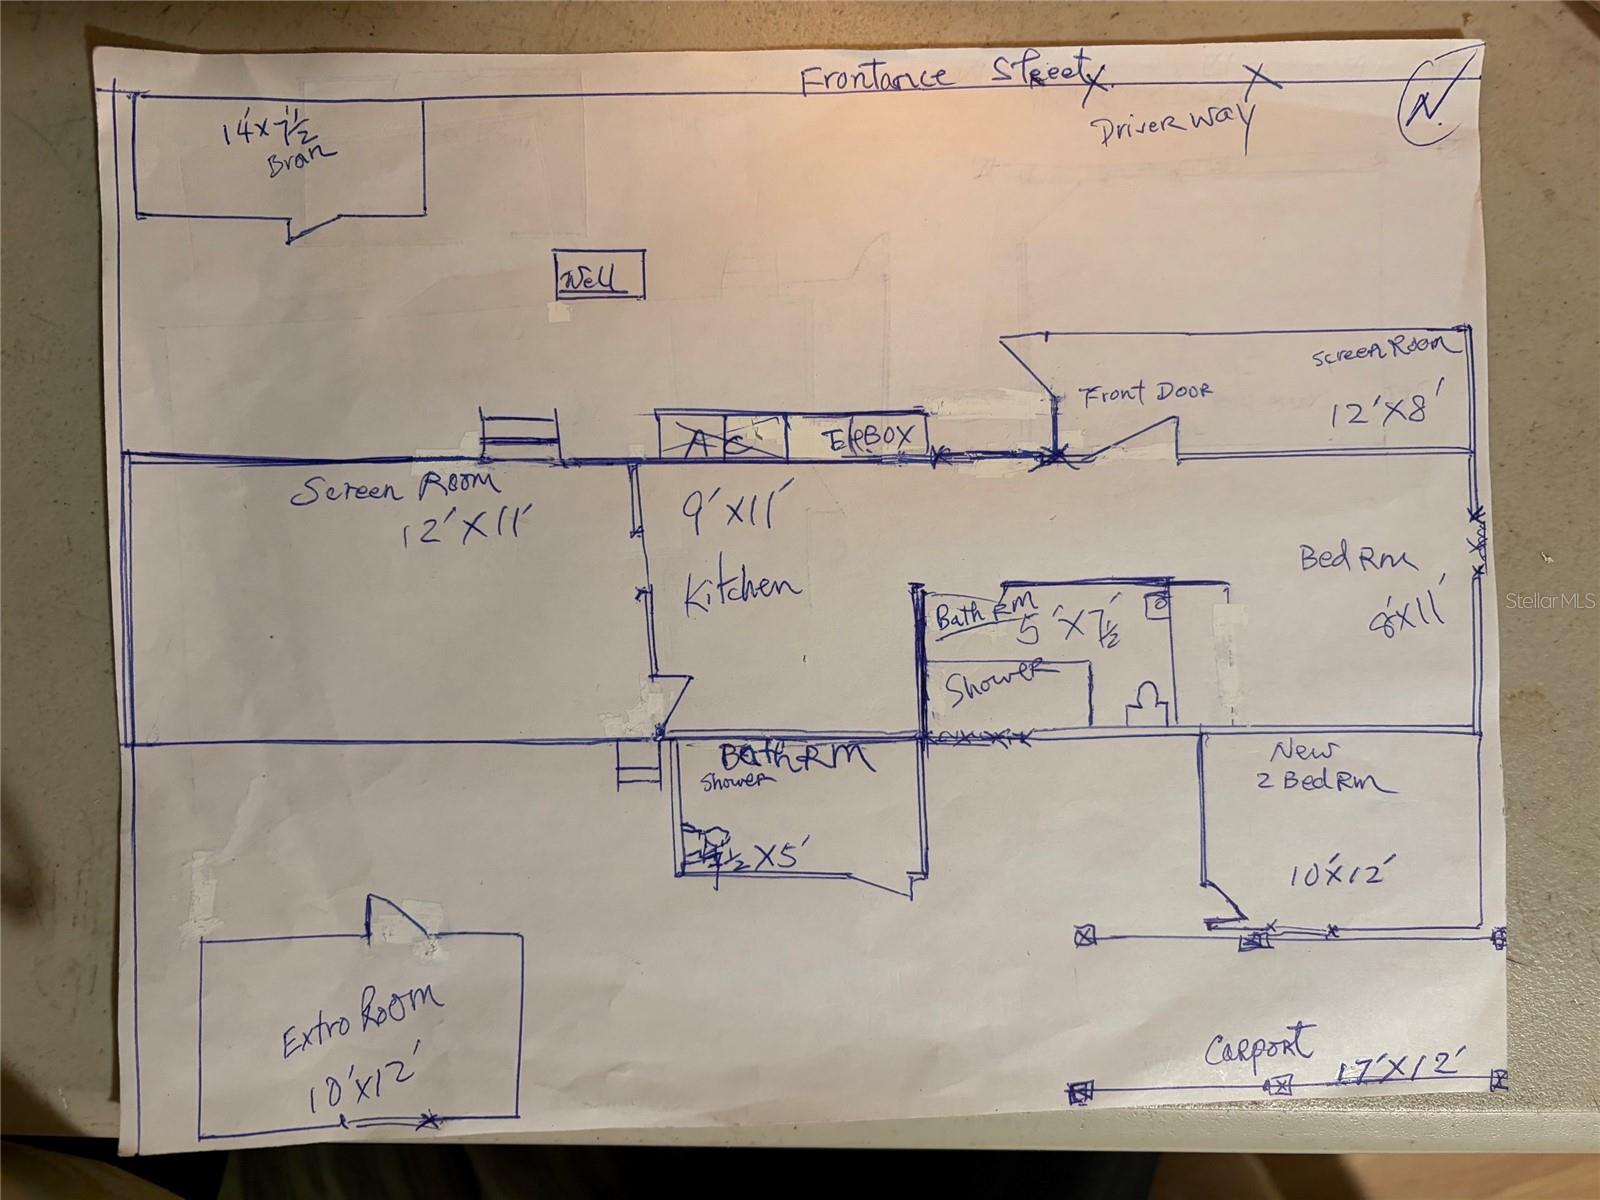 Frontance Street
N
Driver way
14'x7'1/2
Bran
Well
Screen Room
12'X8'
Front Door
AC
BOX
Screen Room
12'X11'
9'X11'
Kitchen
Bed Rm
8'X11'
Bath RM
5'X7 1/2
Shower
BathRM
Shower
7 1/2 X5'
New
2 BedRm
10'X12'
Extro Room
10'X12'
Carport
17'X12'
StellarMLS